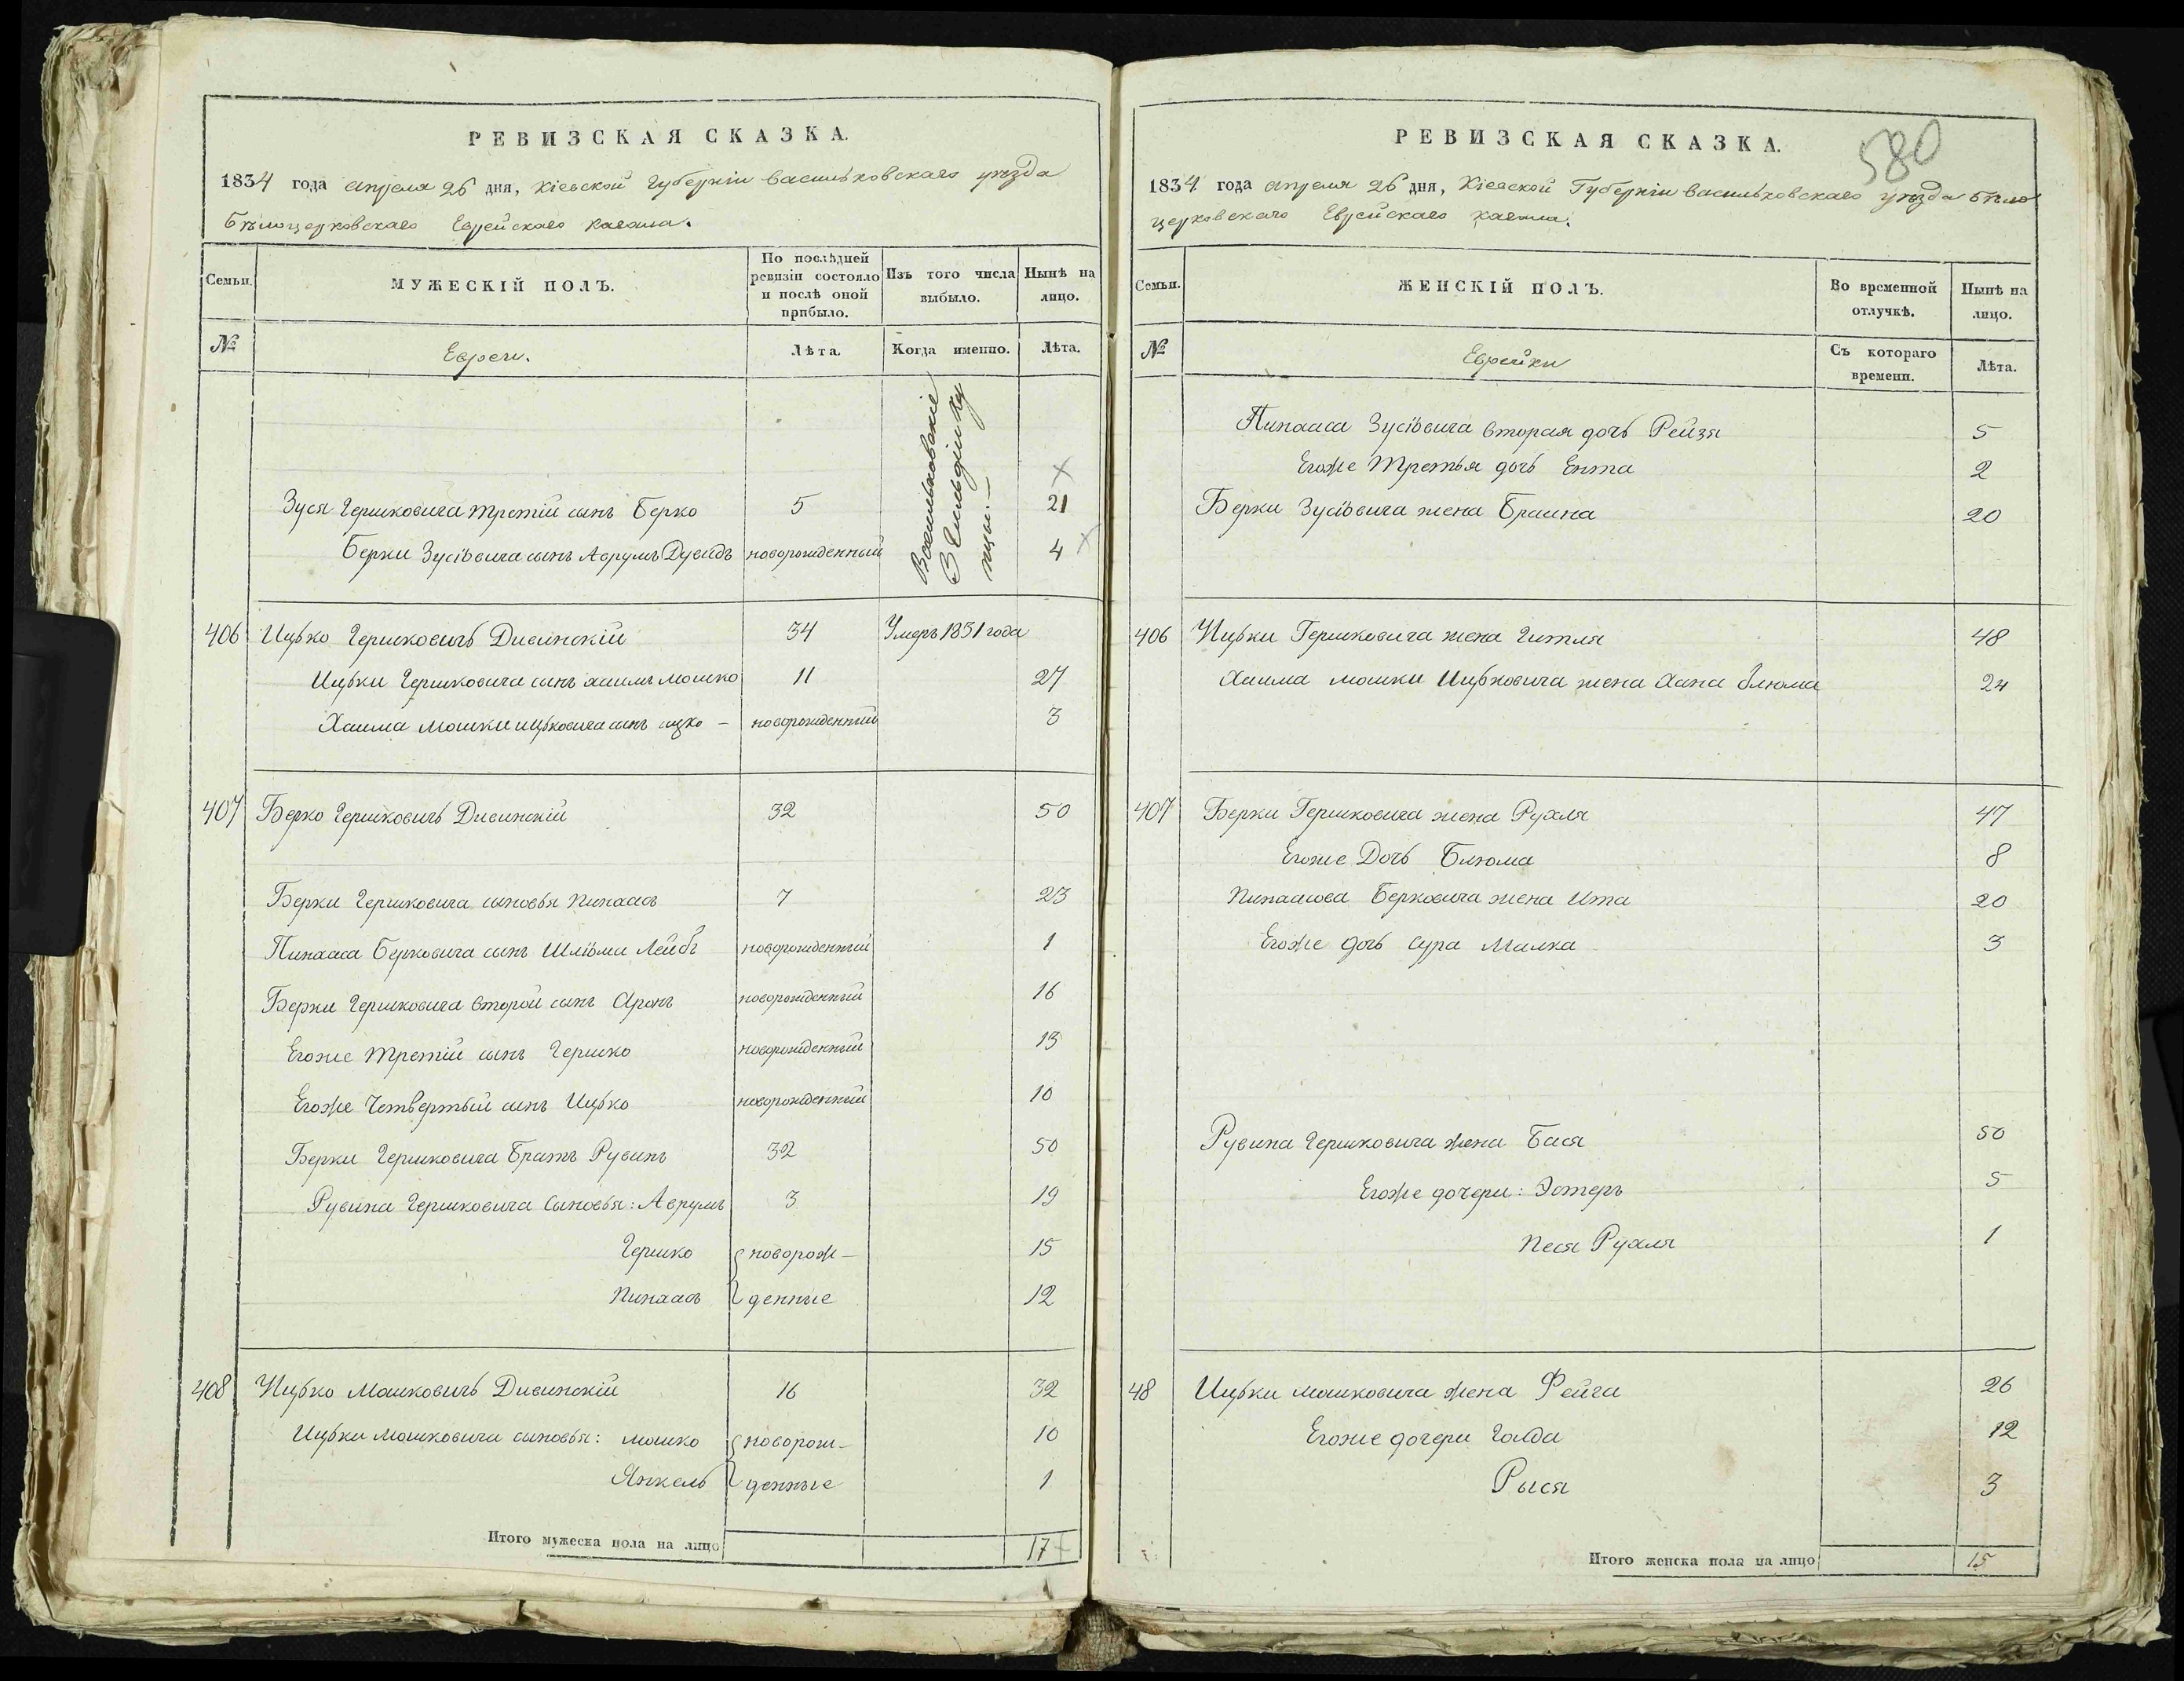 РЕВИЗСКАЯ СКАЗКА.
1834 года апреля 26 дня, Кіевской Губерніи васильковскаго уѣзда
Бѣлоцерковскаго Еврейскаго кагала.
Семьи. МУЖЕСКІЙ ПОЛЪ. По послѣдней ревизіи состояло и послѣ оной прибыло. Изъ того числа выбыло. Нынѣ на лицо.
№ Евреи. Лѣта. Когда именно. Лѣта.
Васильковскіе
3 Гильдіи ку
пцы.—
Зуся Гершковича третій сынъ Берко 5 21
Берки Зусіовича сынъ Аврумъ Дувидъ новорожденный 4
406 Ицько Гершковичъ Дивинскій 34 Умеръ 1831 года
Ицьки Гершковича сынъ хаимъ мошко 11 27
Хаима мошки ицьковича сынъ ицко — новорожденный 3
407 Берко Гершковичъ Дивинскій 32 50
Берки Гершковича сыновья Пинхасъ 7 23
Пинхаса Берковича сынъ Шліома Лейбъ новорожденный 1
Берки Гершковича второй сынъ Аронъ новорожденный 16
Егоже третій сынъ Гершко новорожденный 13
Егоже Четвертый сынъ Ицько новорожденный 10
Берки Гершковича Братъ Рувинъ 32 50
Рувина Гершковича Сыновья: Аврумъ 3 19
Гершко новорож— 15
Пинхасъ денные 12
408 Ицько Мошковичъ Дивинскій 16 32
Ицьки мошковича сыновья: мошко новорож— 10
Янкель денные 1
Итого мужеска пола на лицо 17
580
РЕВИЗСКАЯ СКАЗКА.
1834 года апреля 26 дня, Кіевской Губерніи васильковскаго уѣзда Бѣло
церковскаго Еврейскаго кагала.
Семьи. ЖЕНСКІЙ ПОЛЪ. Во временной отлучкѣ. Нынѣ на лицо.
№ Еврейки Съ котораго времени. Лѣта.
Пинхаса Зусіовича вторая дочь Рейзя 5
Егоже Третья дочь Ента 2
Берки Зусіовича жена Браина 20
406 Ицьки Гершковича жена Гитля 48
Хаима мошки Ицьковича жена Хана блюма 24
407 Берки Гершковича жена Рухля 47
Егоже Дочь Блюма 8
Пинхасова Берковича жена Ита 20
Егоже дочь Сура Малка 3
Рувина Гершковича жена Бася 50
Егоже дочери: Эстеръ 5
Песя Рухля 1
48 Ицьки мошковича жена Фейга 26
Егоже дочери Голда 12
Рыся 3
Итого женска пола на лицо 15